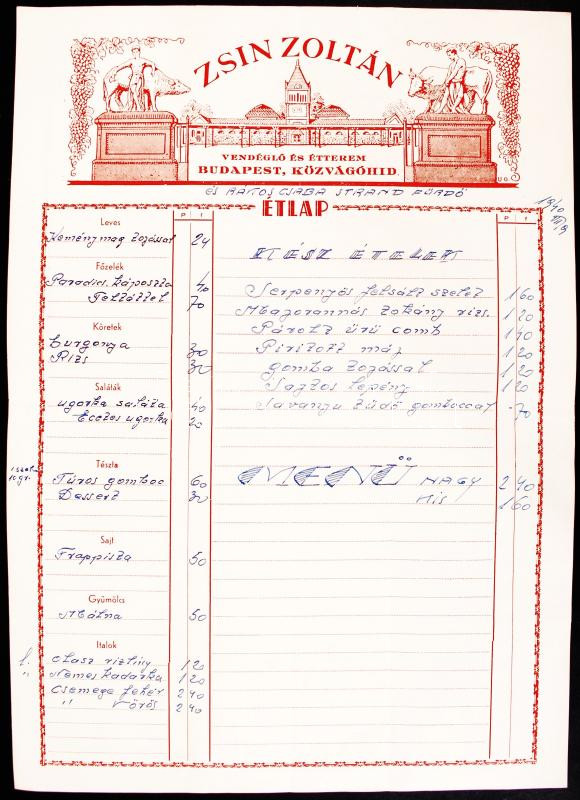 ZSIN ZOLTÁN
VENDÉGLŐ ÉS ÉTTEREM
BUDAPEST, KÖZVÁGÓHID.
ÉS RÁKOSCSABA STRAND FÜRDŐ
1940
VII/9
ÉTLAP
P f
P f
Leves
Köménymag tojással 24
Főzelék
Paradics. káposzta 40
Feltéttel 70
Köretek
burgonya 30
Rizs 30
Saláták
ugorka saláta 40
Ecetes ugorka 20
Tészta
1 szelet
10 gr.
Túros gomboc 60
Dessert 30
Sajt
Trappista 50
Gyümölcs
Málna 50
Italok
l. Olasz rizling 1 20
" Nemes kadarka 1 20
Csemege fehér 2 40
" Vörös 2 40
KÉSZ ÉTELEK
Serpenyős felsált szelet 1 60
Majorannás tokány rizs. 1 20
Párolt ürü comb 1 40
Piritott máj 1 20
gomba tojással 1 20
Sajtos lepény 1 20
Savanyu tüdő gomboccal - 70
MENÜ NAGY 2 40
KIS 1 60